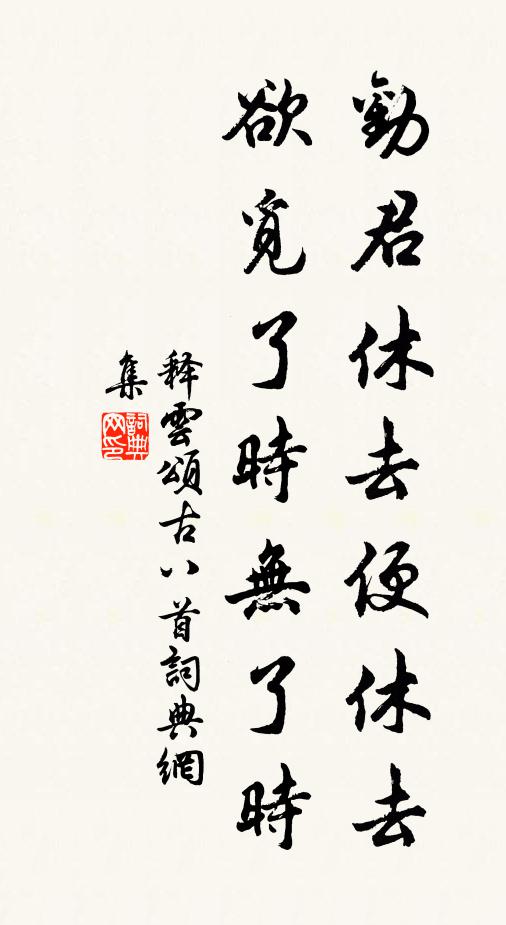 勸君休去便休去
欲覓了時無了時
释雲頌古八首詞典網
集
詞典
网印